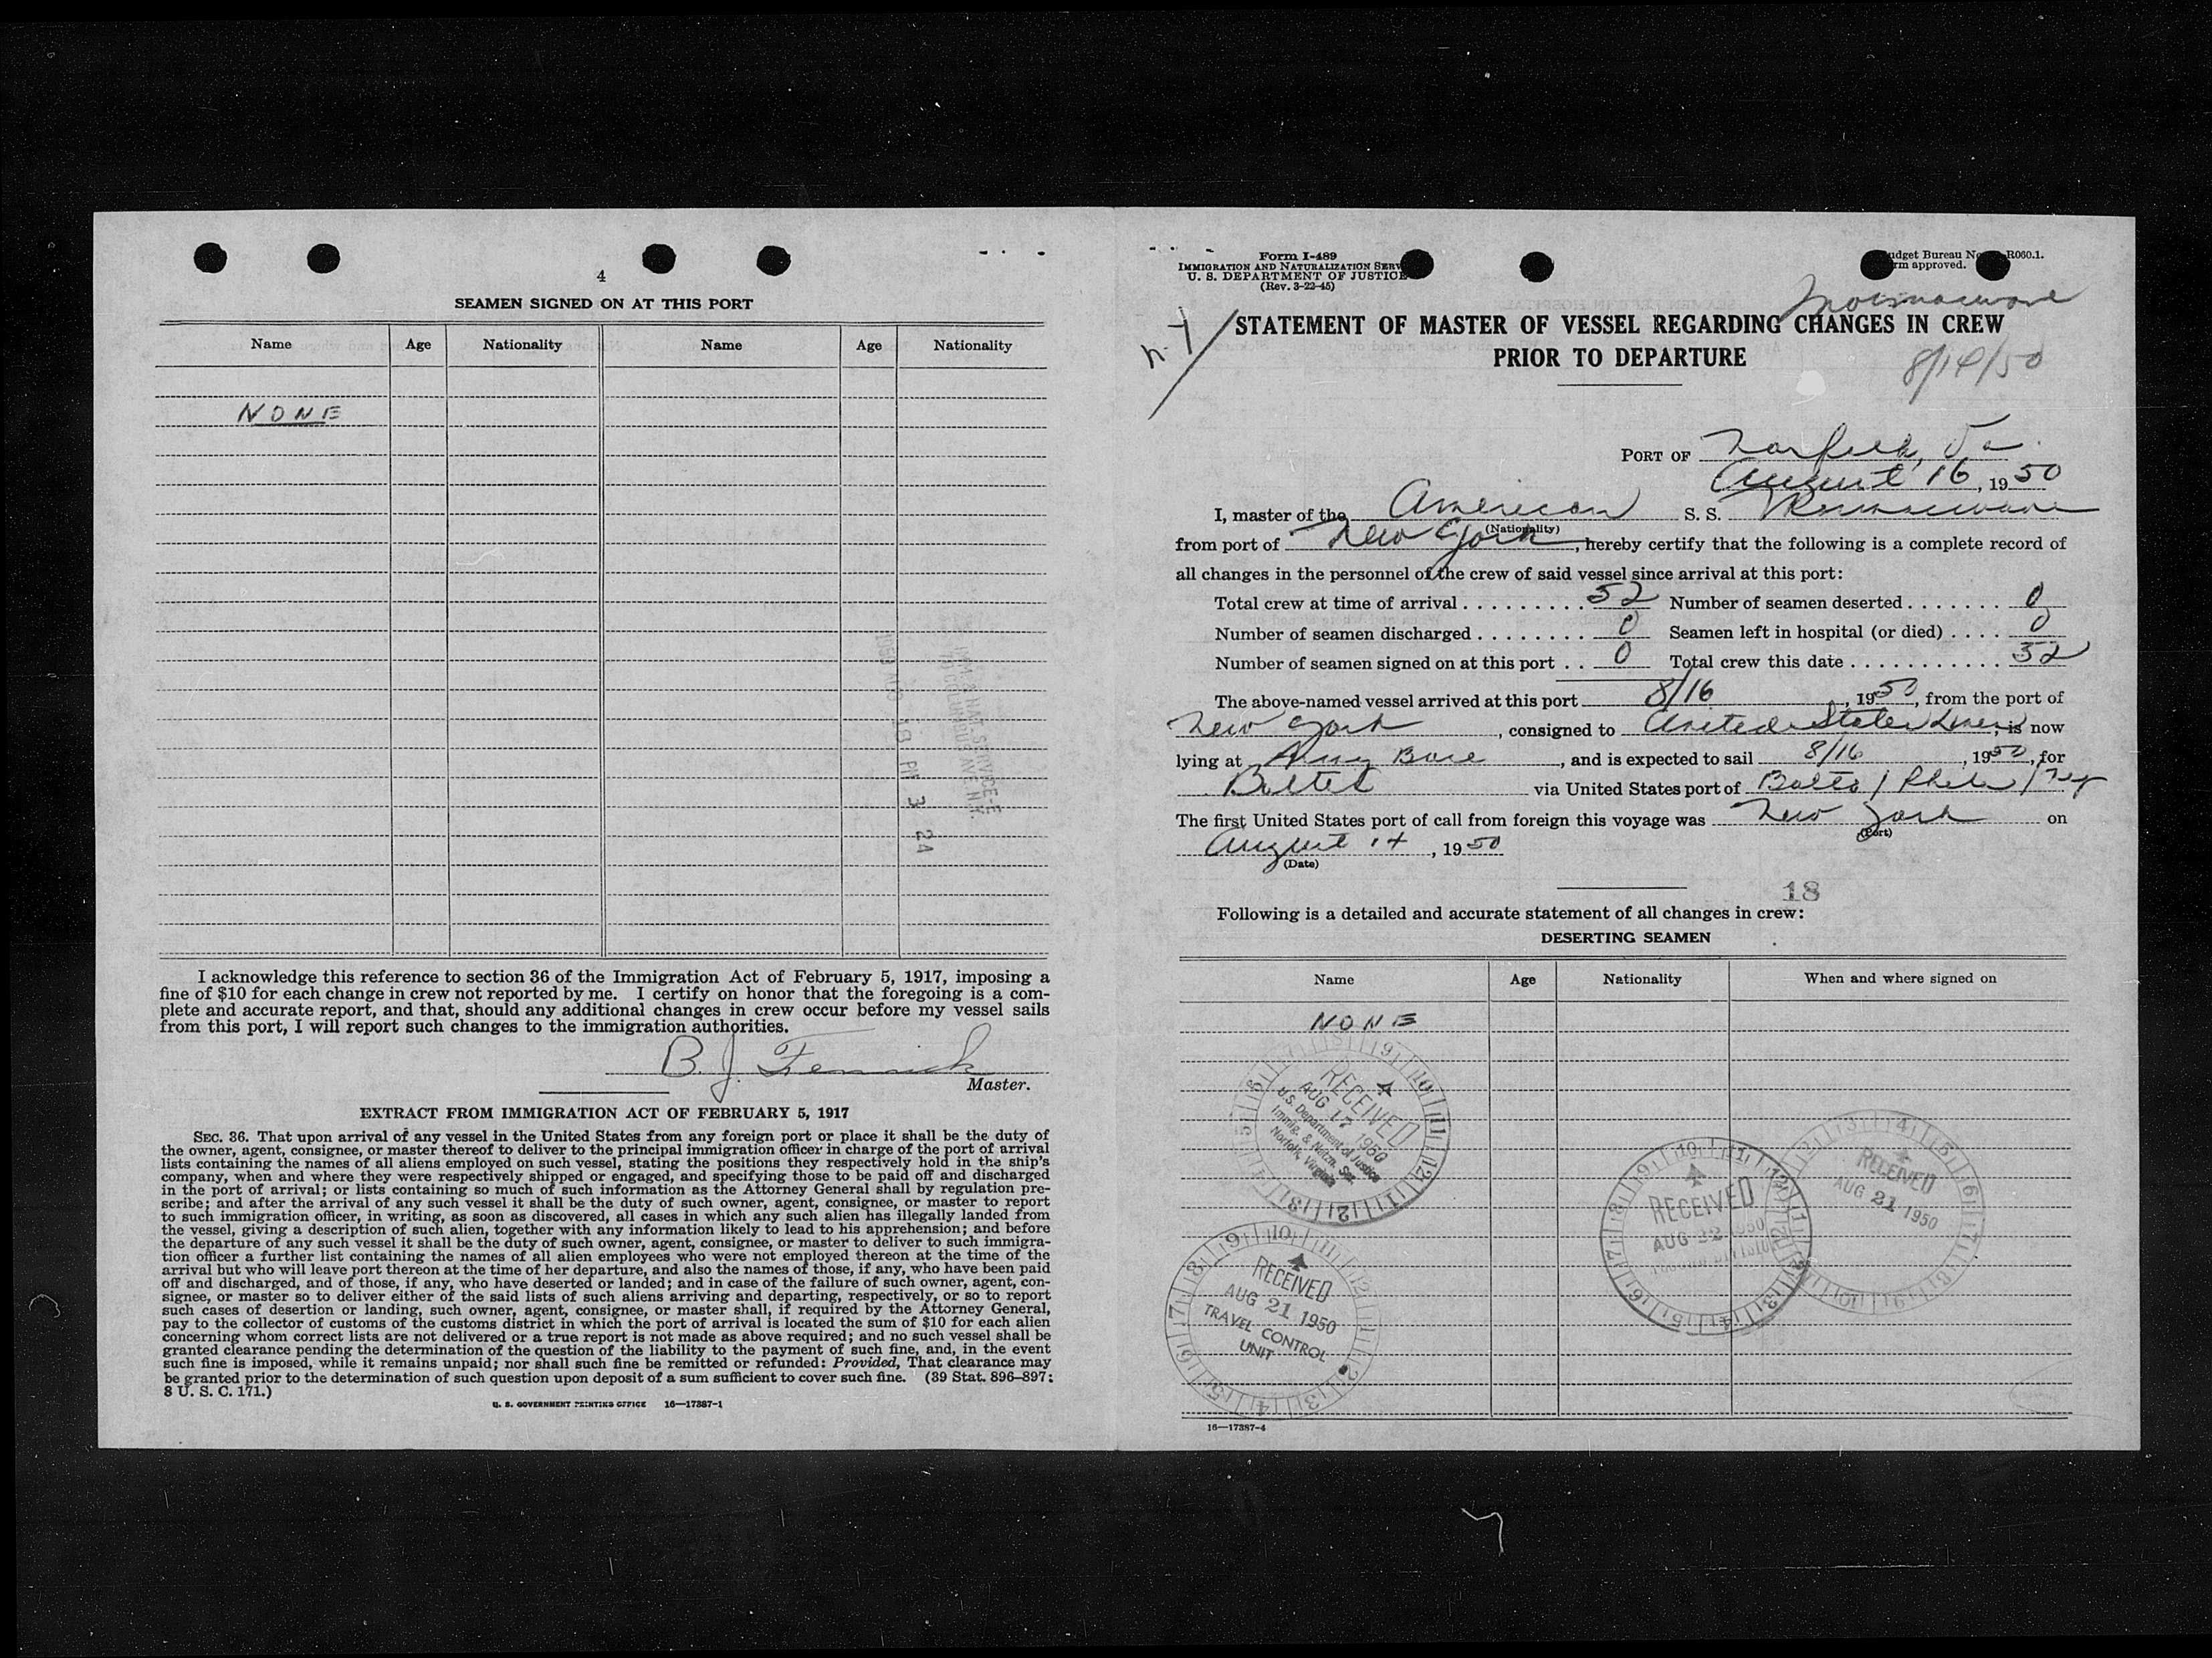 4
SEAMEN SIGNED ON AT THIS PORT
Name Age Nationality Name Age Nationality
NONE
IMM. & NAT. SERVICE-E
70 COLUMBUS AVE N.Y.
1950 AUG 18 PM 3 24
I acknowledge this reference to section 36 of the Immigration Act of February 5, 1917, imposing a
fine of $10 for each change in crew not reported by me. I certify on honor that the foregoing is a com-
plete and accurate report, and that, should any additional changes in crew occur before my vessel sails
from this port, I will report such changes to the immigration authorities.
B. J. Fennick
Master.
EXTRACT FROM IMMIGRATION ACT OF FEBRUARY 5, 1917
SEC. 36. That upon arrival of any vessel in the United States from any foreign port or place it shall be the duty of
the owner, agent, consignee, or master thereof to deliver to the principal immigration officer in charge of the port of arrival
lists containing the names of all aliens employed on such vessel, stating the positions they respectively hold in the ship's
company, when and where they were respectively shipped or engaged, and specifying those to be paid off and discharged
in the port of arrival; or lists containing so much of such information as the Attorney General shall by regulation pre-
scribe; and after the arrival of any such vessel it shall be the duty of such owner, agent, consignee, or master to report
to such immigration officer, in writing, as soon as discovered, all cases in which any such alien has illegally landed from
the vessel, giving a description of such alien, together with any information likely to lead to his apprehension; and before
the departure of any such vessel it shall be the duty of such owner, agent, consignee, or master to deliver to such immigra-
tion officer a further list containing the names of all alien employees who were not employed thereon at the time of the
arrival but who will leave port thereon at the time of her departure, and also the names of those, if any, who have been paid
off and discharged, and of those, if any, who have deserted or landed; and in case of the failure of such owner, agent, con-
signee, or master so to deliver either of the said lists of such aliens arriving and departing, respectively, or so to report
such cases of desertion or landing, such owner, agent, consignee, or master shall, if required by the Attorney General,
pay to the collector of customs of the customs district in which the port of arrival is located the sum of $10 for each alien
concerning whom correct lists are not delivered or a true report is not made as above required; and no such vessel shall be
granted clearance pending the determination of the question of the liability to the payment of such fine, and, in the event
such fine is imposed, while it remains unpaid; nor shall such fine be remitted or refunded: Provided, That clearance may
be granted prior to the determination of such question upon deposit of a sum sufficient to cover such fine. (39 Stat. 896–897;
8 U. S. C. 171.)
U. S. GOVERNMENT PRINTING OFFICE 16—17387-1
Form I-489
IMMIGRATION AND NATURALIZATION SERV
U. S. DEPARTMENT OF JUSTICE
(Rev. 3-22-45)
udget Bureau No R060.1.
rm approved.
N-Y
STATEMENT OF MASTER OF VESSEL REGARDING CHANGES IN CREW
PRIOR TO DEPARTURE
8/14/50
PORT OF Norfolk, Va.
August 16, 1950
I, master of the American S. S.
(Nationality)
from port of New York, hereby certify that the following is a complete record of
all changes in the personnel of the crew of said vessel since arrival at this port:
Total crew at time of arrival 52 Number of seamen deserted 0
Number of seamen discharged 0 Seamen left in hospital (or died) 0
Number of seamen signed on at this port 0 Total crew this date 52
The above-named vessel arrived at this port 8/16, 1950, from the port of
New York, consigned to United States Lines, is now
lying at Army Base, and is expected to sail 8/16, 1950, for
via United States port of Balto / Phila /
The first United States port of call from foreign this voyage was New York on
(Port)
August 14, 1950
(Date)
18
Following is a detailed and accurate statement of all changes in crew:
DESERTING SEAMEN
Name Age Nationality When and where signed on
NONE
RECEIVED
AUG 17 1950
U.S. Department of Justice
Immig. & Natzn. Ser.
Norfolk, Virginia
RECEIVED
AUG 21 1950
TRAVEL CONTROL
UNIT
RECEIVED
AUG 22 1950
RECEIVED
AUG 21 1950
16—17387-4